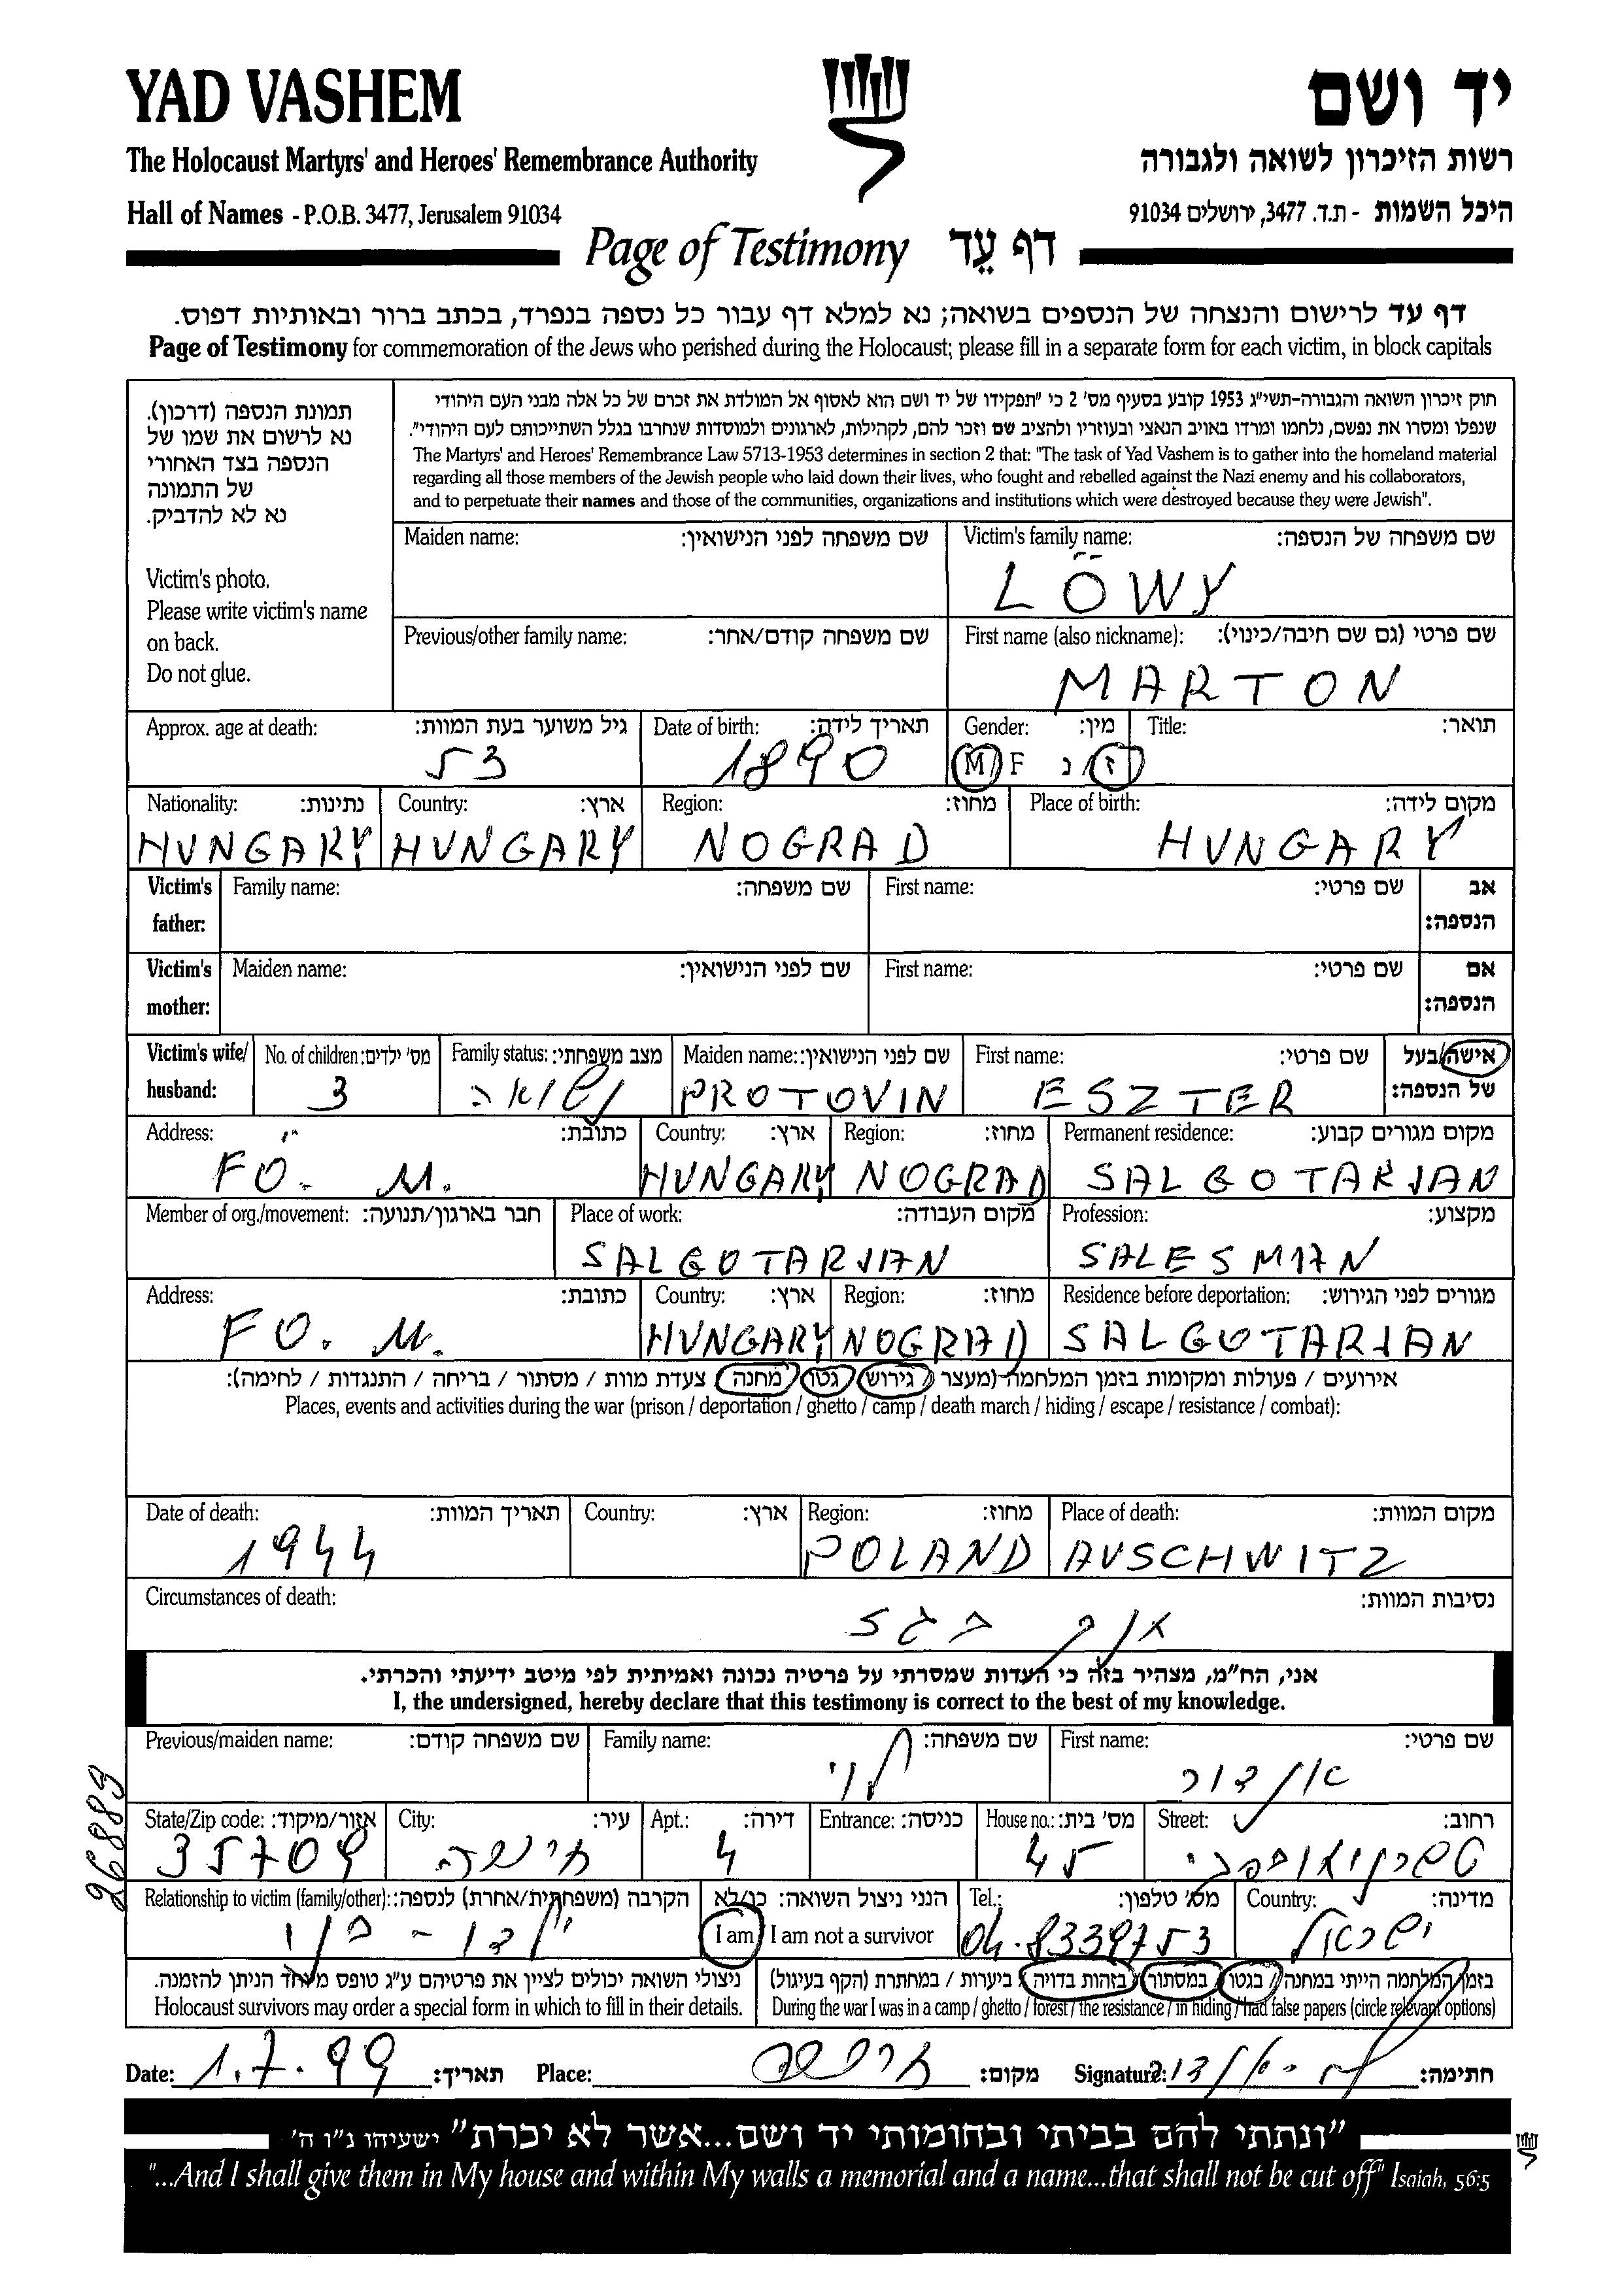 YAD VASHEM
יד ושם
The Holocaust Martyrs' and Heroes' Remembrance Authority
רשות הזיכרון לשואה ולגבורה
Hall of Names - P.O.B. 3477, Jerusalem 91034
היכל השמות - ת.ד. 3477, ירושלים 91034
Page of Testimony דף עֵד
דף עד לרישום והנצחה של הנספים בשואה; נא למלא דף עבור כל נספה בנפרד, בכתב ברור ובאותיות דפוס.
Page of Testimony for commemoration of the Jews who perished during the Holocaust; please fill in a separate form for each victim, in block capitals
תמונת הנספה (דרכון).
נא לרשום את שמו של
הנספה בצד האחורי
של התמונה
נא לא להדביק.
Victim's photo.
Please write victim's name
on back.
Do not glue.
חוק זיכרון השואה והגבורה-תשי"ג 1953 קובע בסעיף מס' 2 כי "תפקידו של יד ושם הוא לאסוף אל המולדת את זכרם של כל אלה מבני העם היהודי
שנפלו ומסרו את נפשם, נלחמו ומרדו באויב הנאצי ובעוזריו ולהציב שם וזכר להם, לקהילות, לארגונים ולמוסדות שנחרבו בגלל השתייכותם לעם היהודי".
The Martyrs' and Heroes' Remembrance Law 5713-1953 determines in section 2 that: "The task of Yad Vashem is to gather into the homeland material
regarding all those members of the Jewish people who laid down their lives, who fought and rebelled against the Nazi enemy and his collaborators,
and to perpetuate their names and those of the communities, organizations and institutions which were destroyed because they were Jewish".
Maiden name: שם משפחה לפני הנישואין:
Victim's family name: שם משפחה של הנספה:
LÖWY
Previous/other family name: שם משפחה קודם/אחר:
First name (also nickname): שם פרטי (גם שם חיבה/כינוי):
MARTON
Approx. age at death: גיל משוער בעת המוות:
53
Date of birth: תאריך לידה:
1890
Gender: מין:
M / F ז / נ
Title: תואר:
Nationality: נתינות:
HUNGARY
Country: ארץ:
HUNGARY
Region: מחוז:
NOGRAD
Place of birth: מקום לידה:
HUNGARY
Victim's father: Family name: שם משפחה: First name: שם פרטי: אב הנספה:
Victim's mother: Maiden name: שם לפני הנישואין: First name: שם פרטי: אם הנספה:
Victim's wife/ husband:
No. of children: מס' ילדים:
3
Family status: מצב משפחתי:
נשואה
Maiden name: שם לפני הנישואין:
PROTOVIN
First name: שם פרטי:
ESZTER
אישה/בעל של הנספה:
Address: כתובת:
FÖ. U.
Country: ארץ:
HUNGARY
Region: מחוז:
NOGRAD
Permanent residence: מקום מגורים קבוע:
SALGOTARJAN
Member of org./movement: חבר בארגון/תנועה:
Place of work: מקום העבודה:
SALGOTARJAN
Profession: מקצוע:
SALESMAN
Address: כתובת:
FO. U.
Country: ארץ:
HUNGARY
Region: מחוז:
NOGRAD
Residence before deportation: מגורים לפני הגירוש:
SALGOTARJAN
אירועים / פעולות ומקומות בזמן המלחמה (מעצר / גירוש / גטו / מחנה / צעדת מוות / מסתור / בריחה / התנגדות / לחימה):
Places, events and activities during the war (prison / deportation / ghetto / camp / death march / hiding / escape / resistance / combat):
Date of death: תאריך המוות:
1944
Country: ארץ:
Region: מחוז:
POLAND
Place of death: מקום המוות:
AUSCHWITZ
Circumstances of death: נסיבות המוות:
בגז
אני, הח"מ, מצהיר בזה כי העדות שמסרתי על פרטיה נכונה ואמיתית לפי מיטב ידיעתי והכרתי.
I, the undersigned, hereby declare that this testimony is correct to the best of my knowledge.
Previous/maiden name: שם משפחה קודם:
Family name: שם משפחה:
לוי
First name: שם פרטי:
אנדור
State/Zip code: אזור/מיקוד:
35704
City: עיר:
חיפה
Apt.: דירה:
4
Entrance: כניסה:
House no.: מס' בית:
45
Street: רחוב:
טשרניחובסקי
Relationship to victim (family/other): הקרבה (משפחתית/אחרת) לנספה:
הנני ניצול השואה: כן/לא
I am / I am not a survivor
Tel.: מס' טלפון:
04-8339753
Country: מדינה:
ישראל
ניצולי השואה יכולים לציין את פרטיהם ע"ג טופס מיוחד הניתן להזמנה.
Holocaust survivors may order a special form in which to fill in their details.
בזמן המלחמה הייתי במחנה / בגטו / במסתור / בזהות בדויה / ביערות / במחתרת (הקף בעיגול)
During the war I was in a camp / ghetto / forest / the resistance / in hiding / had false papers (circle relevant options)
Date: 1.7.99 תאריך:
Place: חיפה מקום:
Signature: חתימה:
268889
"ונתתי להם בביתי ובחומותי יד ושם...אשר לא יכרת" ישעיהו נ"ו ה'
"...And I shall give them in My house and within My walls a memorial and a name...that shall not be cut off" Isaiah, 56:5